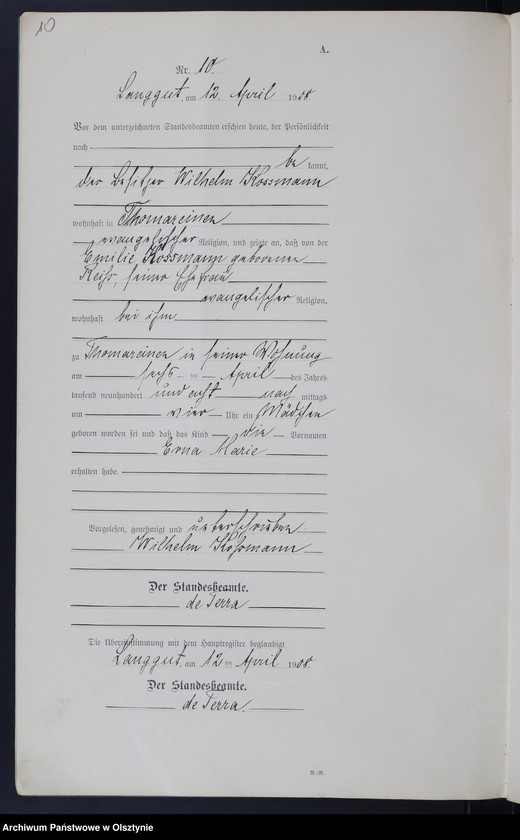 10
A.
Nr. 10.
Langgut, am 12. April 1908.
Vor dem unterzeichneten Standesbeamten erschien heute, der Persönlichkeit
nach
be kannt,
der Besitzer Wilhelm Kossmann
wohnhaft in Thomareinen
evangelischer Religion, und zeigte an, daß von der
Emilie Kossmann geborenen
Reiss, seiner Ehefrau
evangelischer Religion,
wohnhaft bei ihm
zu Thomareinen in seiner Wohnung
am sechs ten April des Jahres
tausend neunhundert und acht nach mittags
um vier Uhr ein Mädchen
geboren worden sei und daß das Kind die Vornamen
Erna Marie
erhalten habe.
Vorgelesen, genehmigt und unterschrieben
Wilhelm Koßmann
Der Standesbeamte.
de Terra
Die Übereinstimmung mit dem Hauptregister beglaubigt
Langgut, am 12 ten April 1908.
Der Standesbeamte.
de Terra.
Archiwum Państwowe w Olsztynie